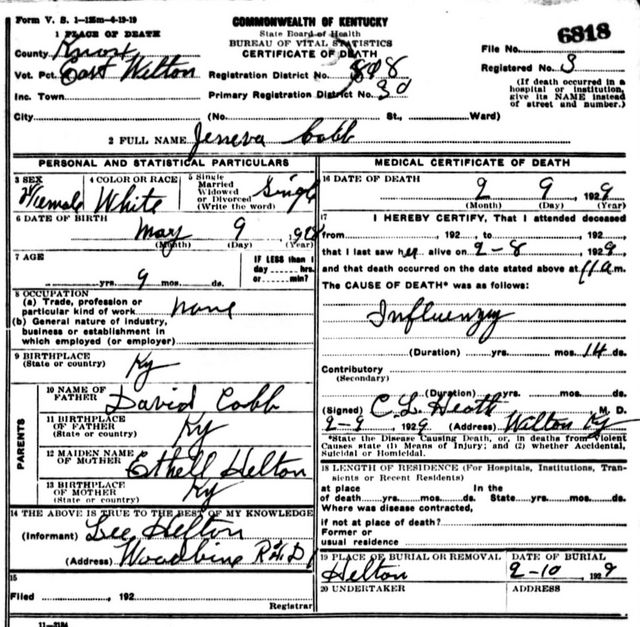 Form V. S. 1-125m-4-19-19
COMMONWEALTH OF KENTUCKY
State Board of Health
BUREAU OF VITAL STATISTICS
CERTIFICATE OF DEATH
1 PLACE OF DEATH
County Knox
Vot. Pct. East Wilton
Inc. Town
City
Registration District No.
Primary Registration District No.
(No. St., Ward)
File No. 6818
Registered No. 3
(If death occurred in a
hospital or institution,
give its NAME instead
of street and number.)
2 FULL NAME Jeneva Cobb
PERSONAL AND STATISTICAL PARTICULARS
3 SEX
Female
4 COLOR OR RACE
White
5 Single
Married
Widowed
or Divorced
(Write the word)
Single
6 DATE OF BIRTH
May 9
(Month) (Day) (Year)
7 AGE
yrs. 9 mos. ds.
IF LESS than 1
day hrs.
or min?
8 OCCUPATION
(a) Trade, profession or
particular kind of work none
(b) General nature of industry,
business or establishment in
which employed (or employer)
9 BIRTHPLACE
(State or country) Ky
PARENTS
10 NAME OF
FATHER David Cobb
11 BIRTHPLACE
OF FATHER
(State or country) Ky
12 MAIDEN NAME
OF MOTHER Ethell Helton
13 BIRTHPLACE
OF MOTHER
(State or country) Ky
14 THE ABOVE IS TRUE TO THE BEST OF MY KNOWLEDGE
(Informant) Lee Helton
(Address) Woodbine R#D1
15
Filed , 192
Registrar
11-3184
MEDICAL CERTIFICATE OF DEATH
16 DATE OF DEATH
2 9 1929
(Month) (Day) (Year)
17 I HEREBY CERTIFY, That I attended deceased
from , 192 , to , 192
that I last saw her alive on 2-8 , 1929,
and that death occurred on the date stated above at 11 a m.
The CAUSE OF DEATH* was as follows:
Influenza
(Duration) yrs. mos. 14 ds.
Contributory
(Secondary)
(Duration) yrs. mos. ds.
(Signed) C. L. Heath , M. D.
2-9, 1929 (Address) Wilton Ky
*State the Disease Causing Death, or, in deaths from Violent
Causes state (1) Means of Injury; and (2) whether Accidental,
Suicidal or Homicidal.
18 LENGTH OF RESIDENCE (For Hospitals, Institutions, Tran-
sients or Recent Residents)
at place In the
of death yrs. mos. ds. State yrs. mos. ds.
Where was disease contracted,
if not at place of death?
Former or
usual residence
19 PLACE OF BURIAL OR REMOVAL
Helton
DATE OF BURIAL
2-10 , 1929
20 UNDERTAKER
ADDRESS